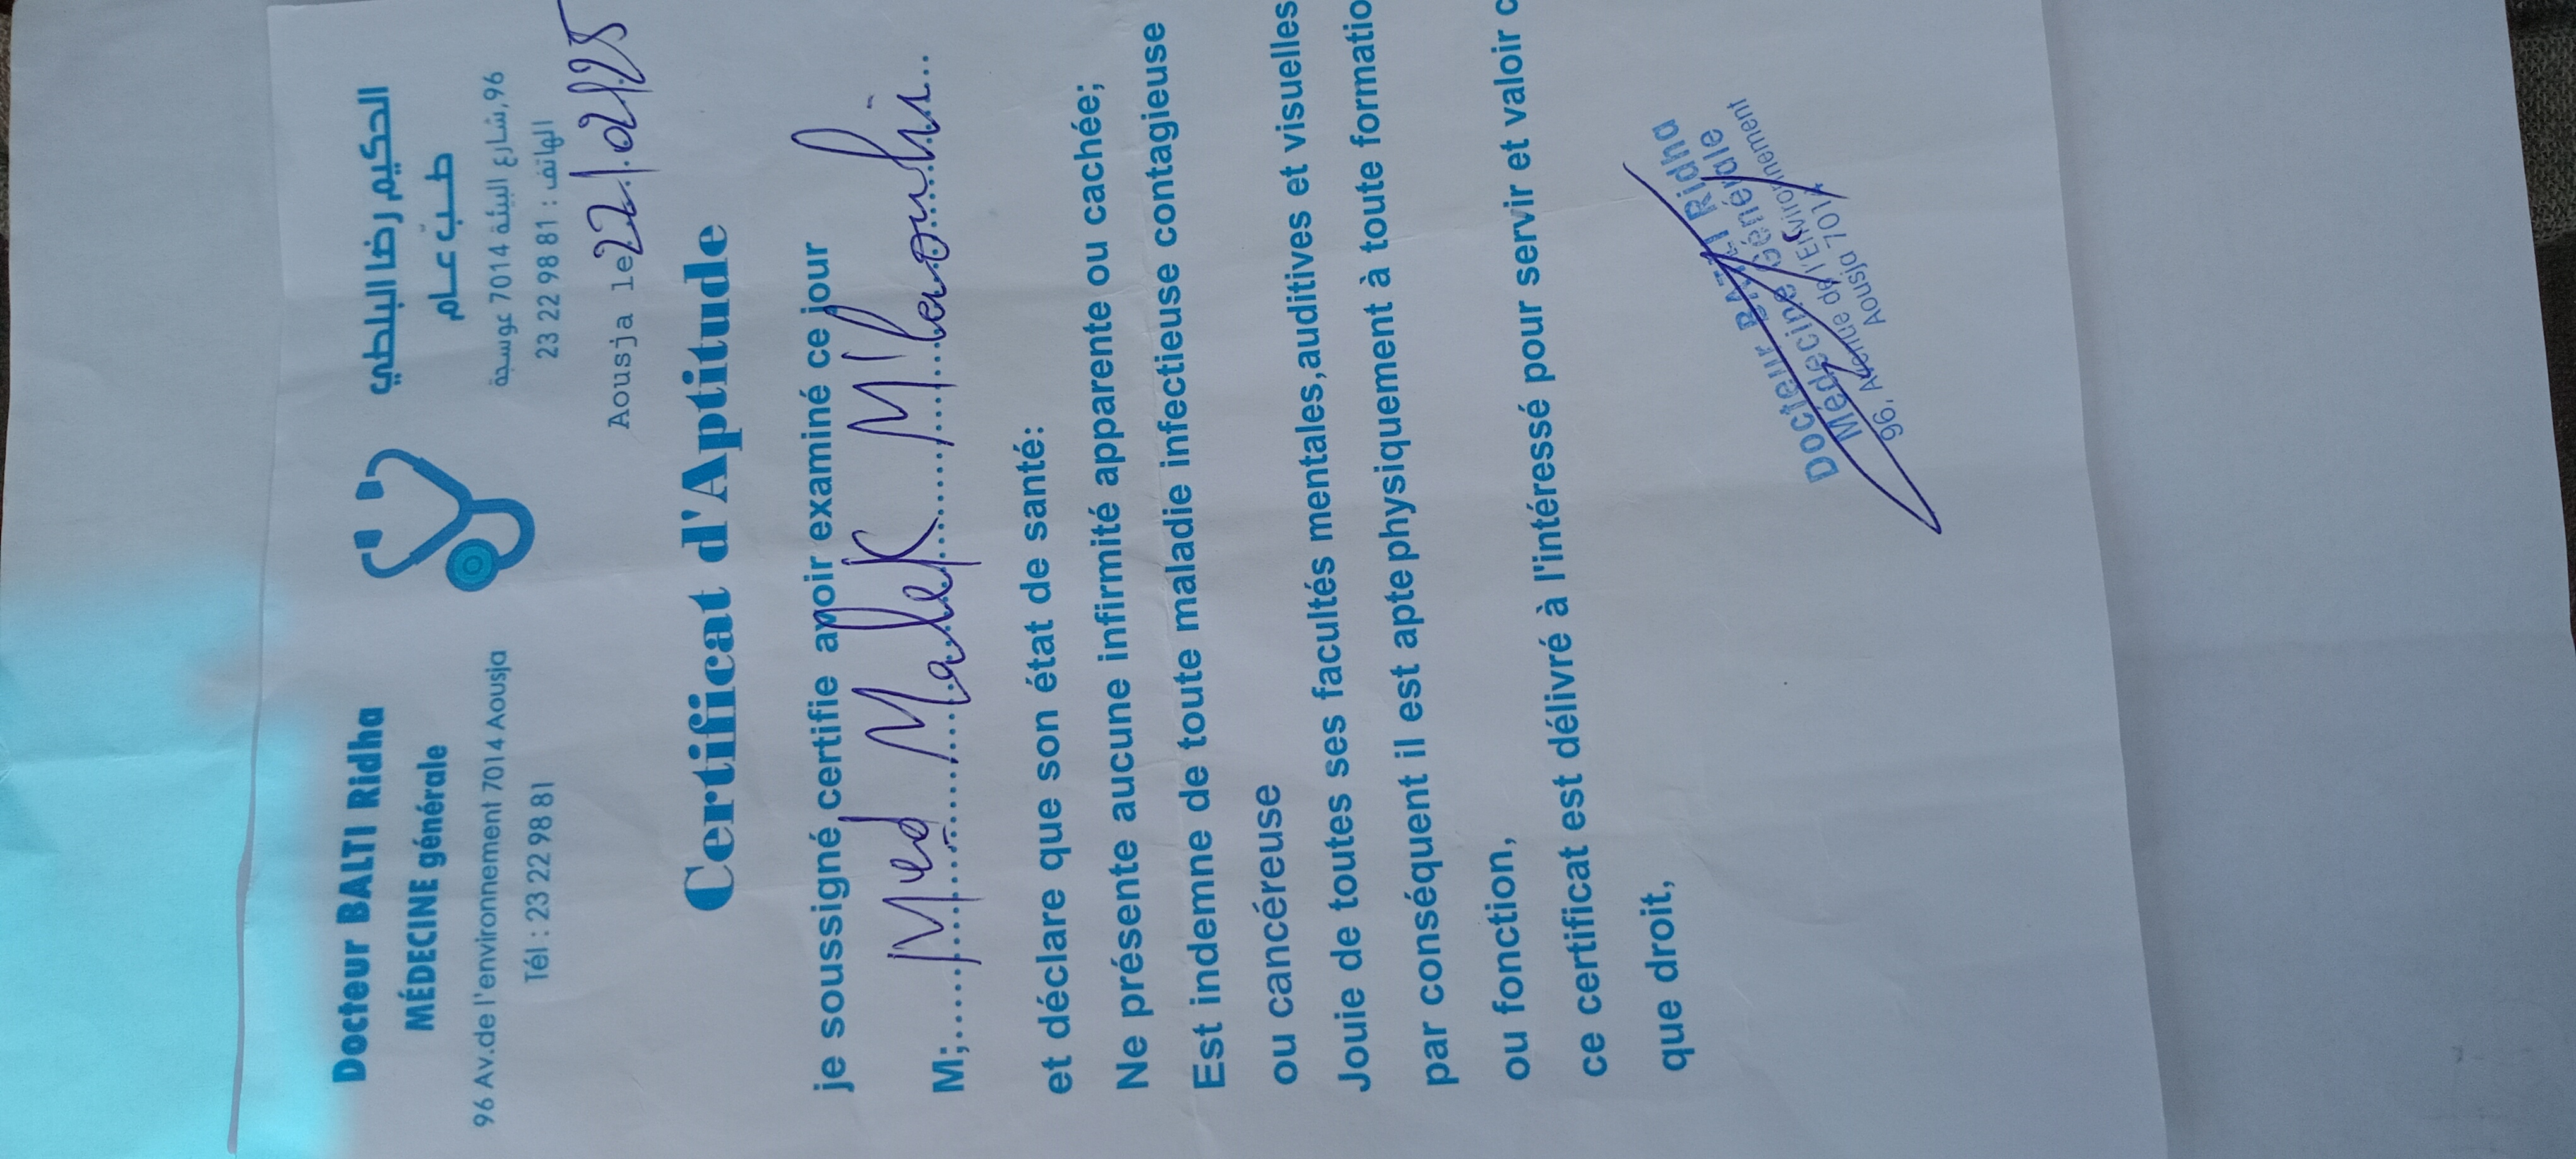 Docteur BALTI Ridha
MÉDECINE générale
96 Av.de l'environnement 7014 Aousja
Tél : 23 22 98 81
الحكيم رضا البلطي
طـبّ عـــام
96,شارع البيئة 7014 عوسجة
الهاتف : 81 98 22 23
Aousja le 22/02/25
Certificat d'Aptitude
je soussigné certifie avoir examiné ce jour
M;..... Med Malek M'laouhi...
et déclare que son état de santé:
Ne présente aucune infirmité apparente ou cachée;
Est indemne de toute maladie infectieuse contagieuse
ou cancéreuse
Jouie de toutes ses facultés mentales,auditives et visuelles
par conséquent il est apte physiquement à toute formatio
ou fonction,
ce certificat est délivré à l'intéressé pour servir et valoir c
que droit,
Docteur BALTI Ridha
Médecine Générale
96, Avenue de l'Environnement
Aousja 7014